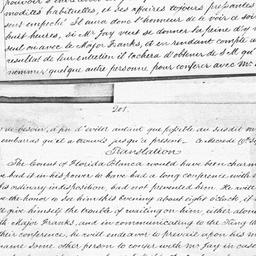 modités habituelles, et ses affaires toujours présentes
sont empeché. Il aura donc l'honneur de le voir ce soir
huit heures, si Mr Jay veut se donner la peine d'y
seul ou avec le Major Franks, et en rendant compte
resultat de leur entretien il tachera d'obtenir de S. M. qu'
nommer quelque autre personne pour conferer avec Mr
201.
besoin, afin d'éviter autant que possible au susdit
embaras qu'il a trouvés jusqu'à present.
Translation
The Count of Florida Blanca would have been charm
had it in his power to have had a long conference with
his ordinary indisposition, but not prevented him. He will
the honor to see him this evening about eight o'clock, if
will give himself the trouble of waiting on him either alone
with Major Franks, and in communicating to the King th
their conference, he will endeavor to prevail upon his m
name some other person to confer with Mr Jay in case